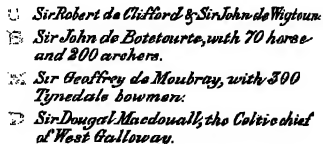 U Sir Robert de Clifford & Sir John de Wigtoun.
Sir John de Botetourte, with 70 horse
and 200 archers.
Sir Geoffrey de Moubray, with 300
Tynedale bowmen.
Sir Dougal Macdouall, the Celtic chief
of West Galloway.